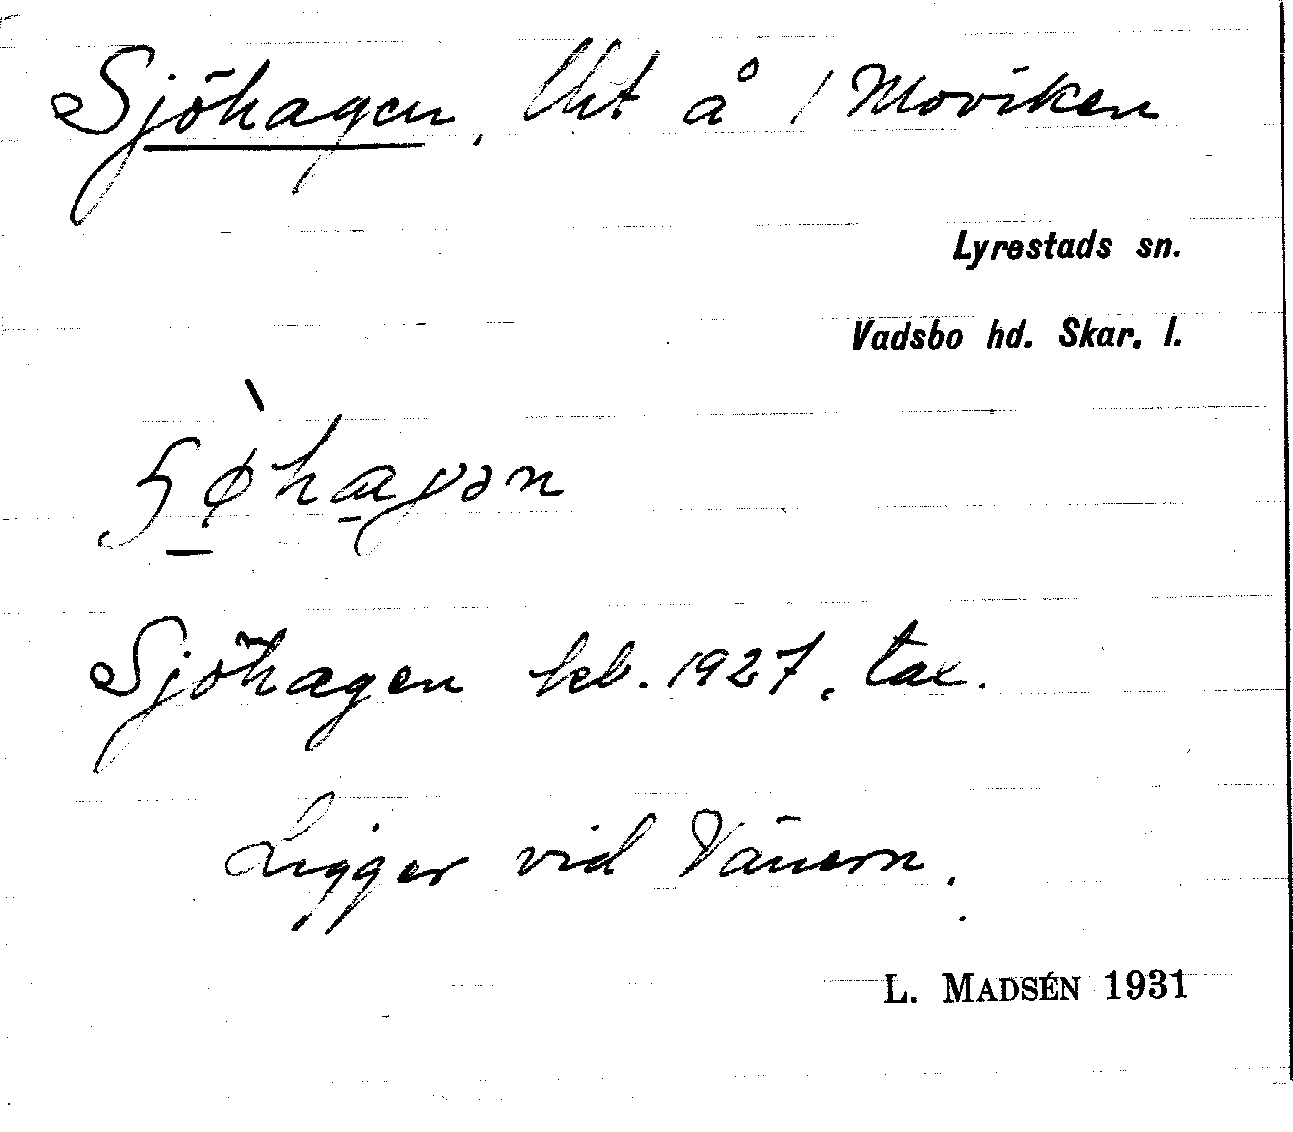 Sjöhagen, Lht å 1 Moviken
Lyrestads sn.
Vadsbo hd. Skar. l.
Sjöhagen kb. 1927, tax.
Ligger vid Vänern.
L. MADSÉN 1931